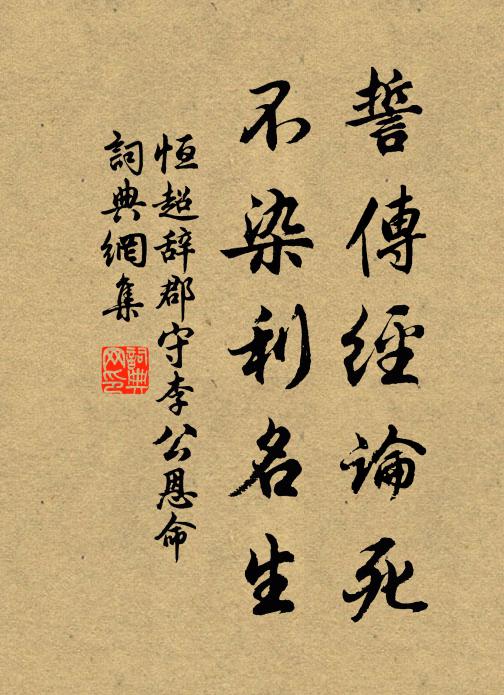 誓傳經論死
不染利名生
恒超辞郡守李公恩命
詞典網集
詞典
网印